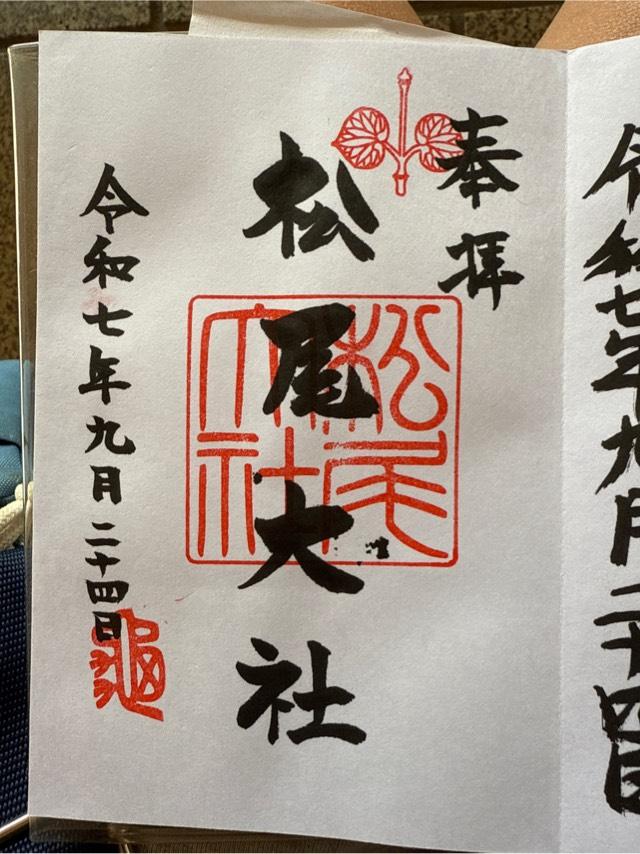 奉拝
松尾大社
松尾大社
令和七年九月二十四日
龜
令和七年九月二十四日